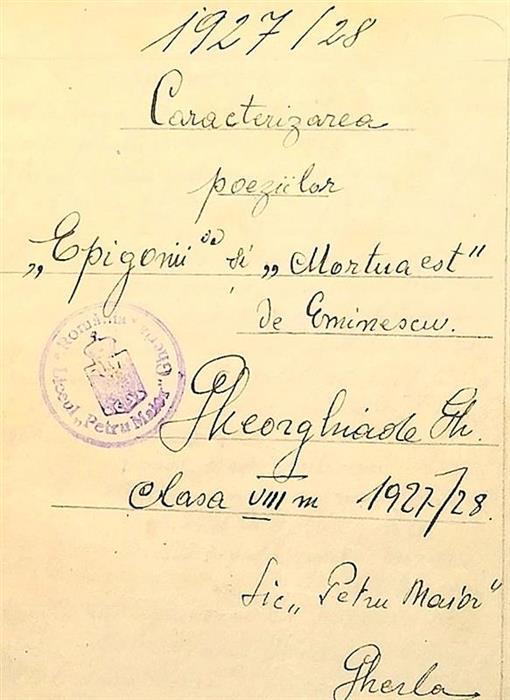 1927/28
Caracterizarea
poeziilor
„Epigonii" și „Mortua est"
de Eminescu.
România · Gherla · Liceul „Petru Maior"
Gheorghiade Gh.
Clasa VIII m 1927/28.
Lic „Petru Maior"
Gherla